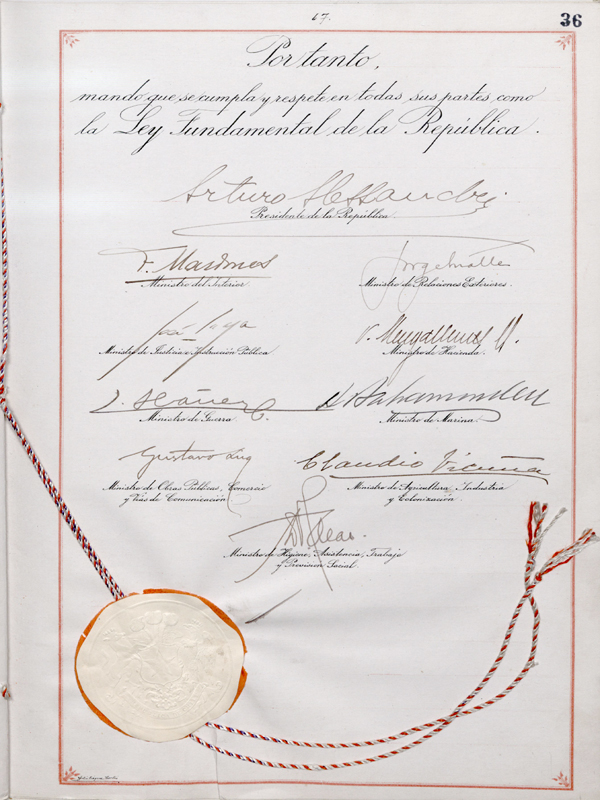 17.
36
Por tanto,
mando que se cumpla y respete en todas sus partes como
la Ley Fundamental de la República.
Arturo Alessandri
Presidente de la República.
F. Mardones
Ministro del Interior.
Jorge Matte
Ministro de Relaciones Exteriores.
José Maza
Ministro de Justicia e Instrucción Pública
V. Magallanes M.
Ministro de Hacienda.
C. Ibáñez C.
Ministro de Guerra.
Bahamonde
Ministro de Marina.
Gustavo Lira
Ministro de Obras Públicas, Comercio
y Vías de Comunicación
Claudio Vicuña
Ministro de Agricultura, Industria
y Colonización
Ministro de Higiene, Asistencia, Trabajo
y Previsión Social.